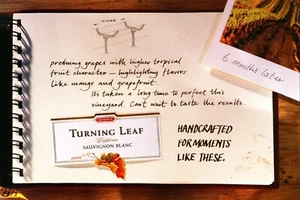 WIDER
producing grapes with higher tropical
fruit character — highlighting flavors
like mango and grapefruit.
It's taken a long time to perfect this
vineyard. Can't wait to taste the results.
6 months later
TURNING LEAF
California
SAUVIGNON BLANC
HANDCRAFTED
FOR MOMENTS
LIKE THESE.